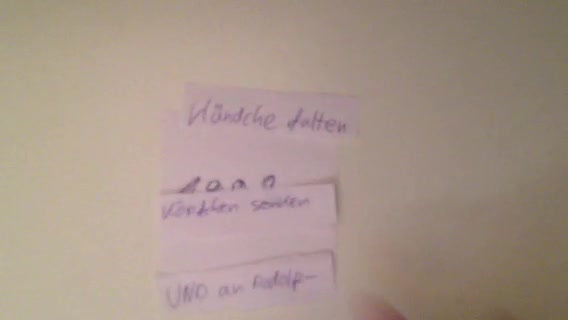 Händche falten
Köpfchen senken
UNO an Adolf-